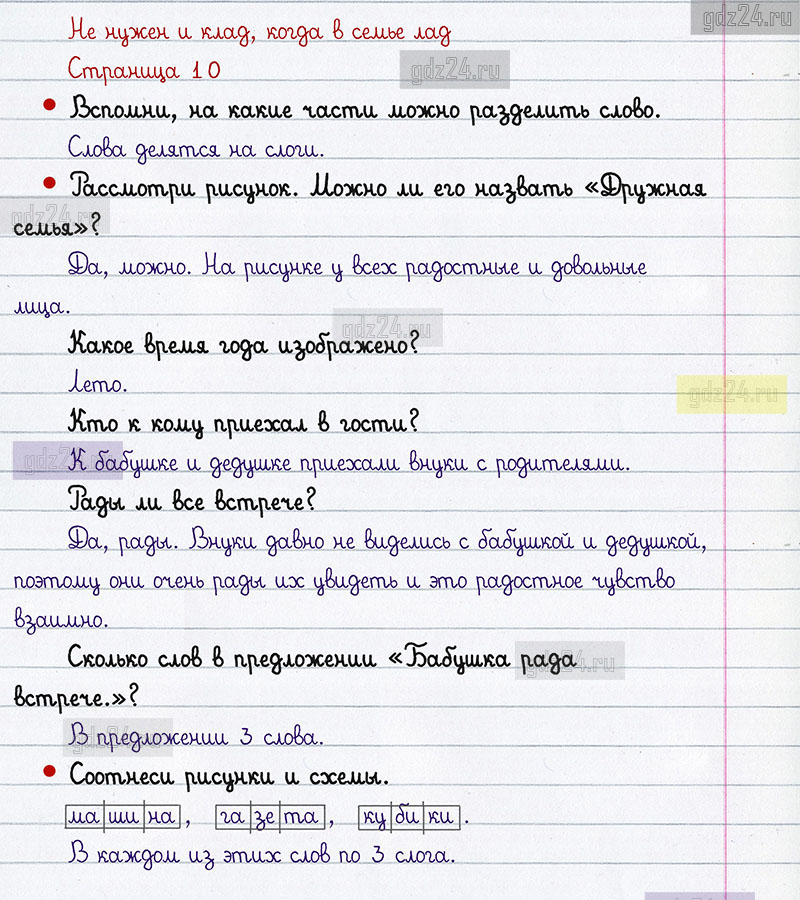 gdz24.ru
Не нужен и клад, когда в семье лад
Страница 10
gdz24.ru
• Вспомни, на какие части можно разделить слово.
Слова делятся на слоги.
• Рассмотри рисунок. Можно ли его назвать «Дружная
gdz24.ru
семья»?
Да, можно. На рисунке у всех радостные и довольные
лица.
gdz24.ru
Какое время года изображено?
Лето.
gdz24.ru
Кто к кому приехал в гости?
К бабушке и дедушке приехали внуки с родителями.
Рады ли все встрече?
Да, рады. Внуки давно не виделись с бабушкой и дедушкой,
поэтому они очень рады их увидеть и это радостное чувство
взаимно.
Сколько слов в предложении «Бабушка рада
встрече.»?
В предложении 3 слова.
• Соотнеси рисунки и схемы.
ма|ши|на, га|зе|та, ку|би|ки.
В каждом из этих слов по 3 слога.